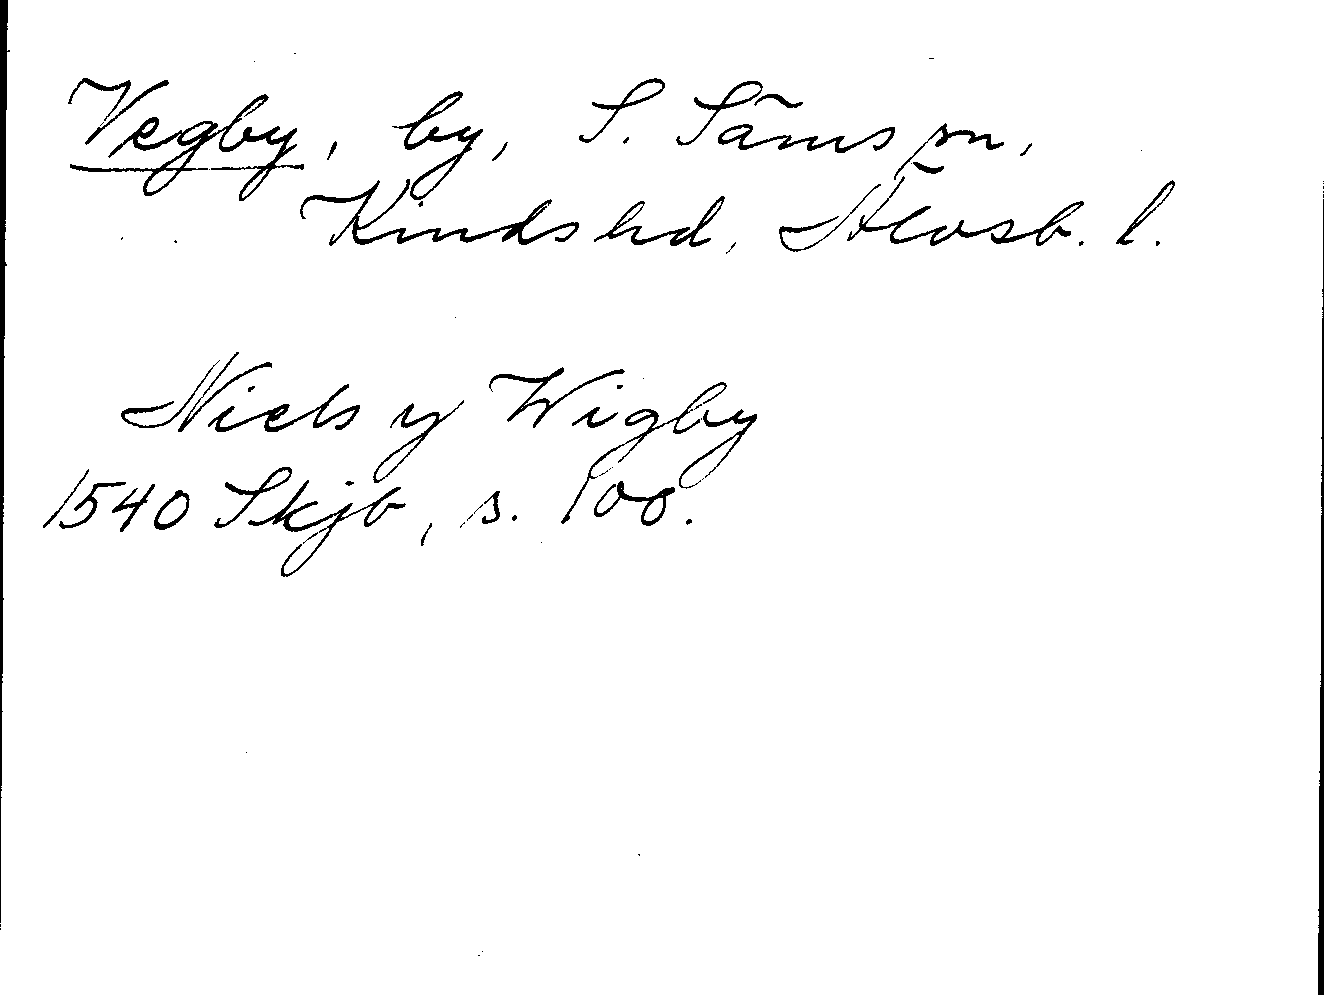 Vegby, by, S. Säms sn,
Kinds hd, Älvsb. l.
Niels y Wigby
1540 Skjb, s. 100.